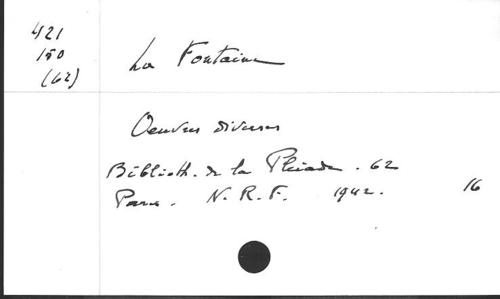 421
150
(62)
La Fontaine
Oeuvres diverses
Biblioth. de la Pléiade. 62
Paris. N. R. F. 1942. 16